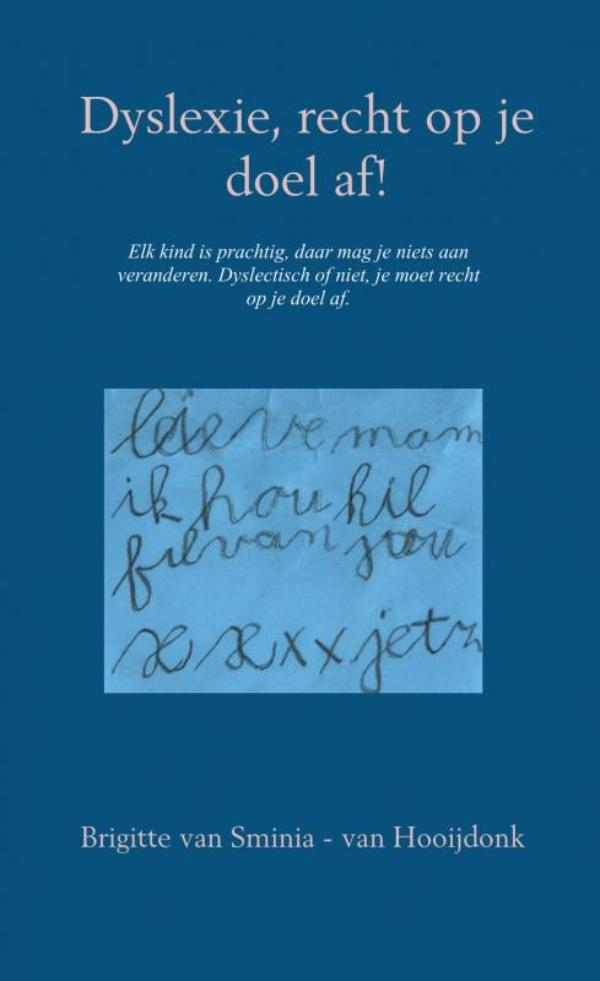 Dyslexie, recht op je
doel af!
Elk kind is prachtig, daar mag je niets aan
veranderen. Dyslectisch of niet, je moet recht
op je doel af.
lieve mam
ik hou hil
fil van jou
x x x x jetz
Brigitte van Sminia - van Hooijdonk